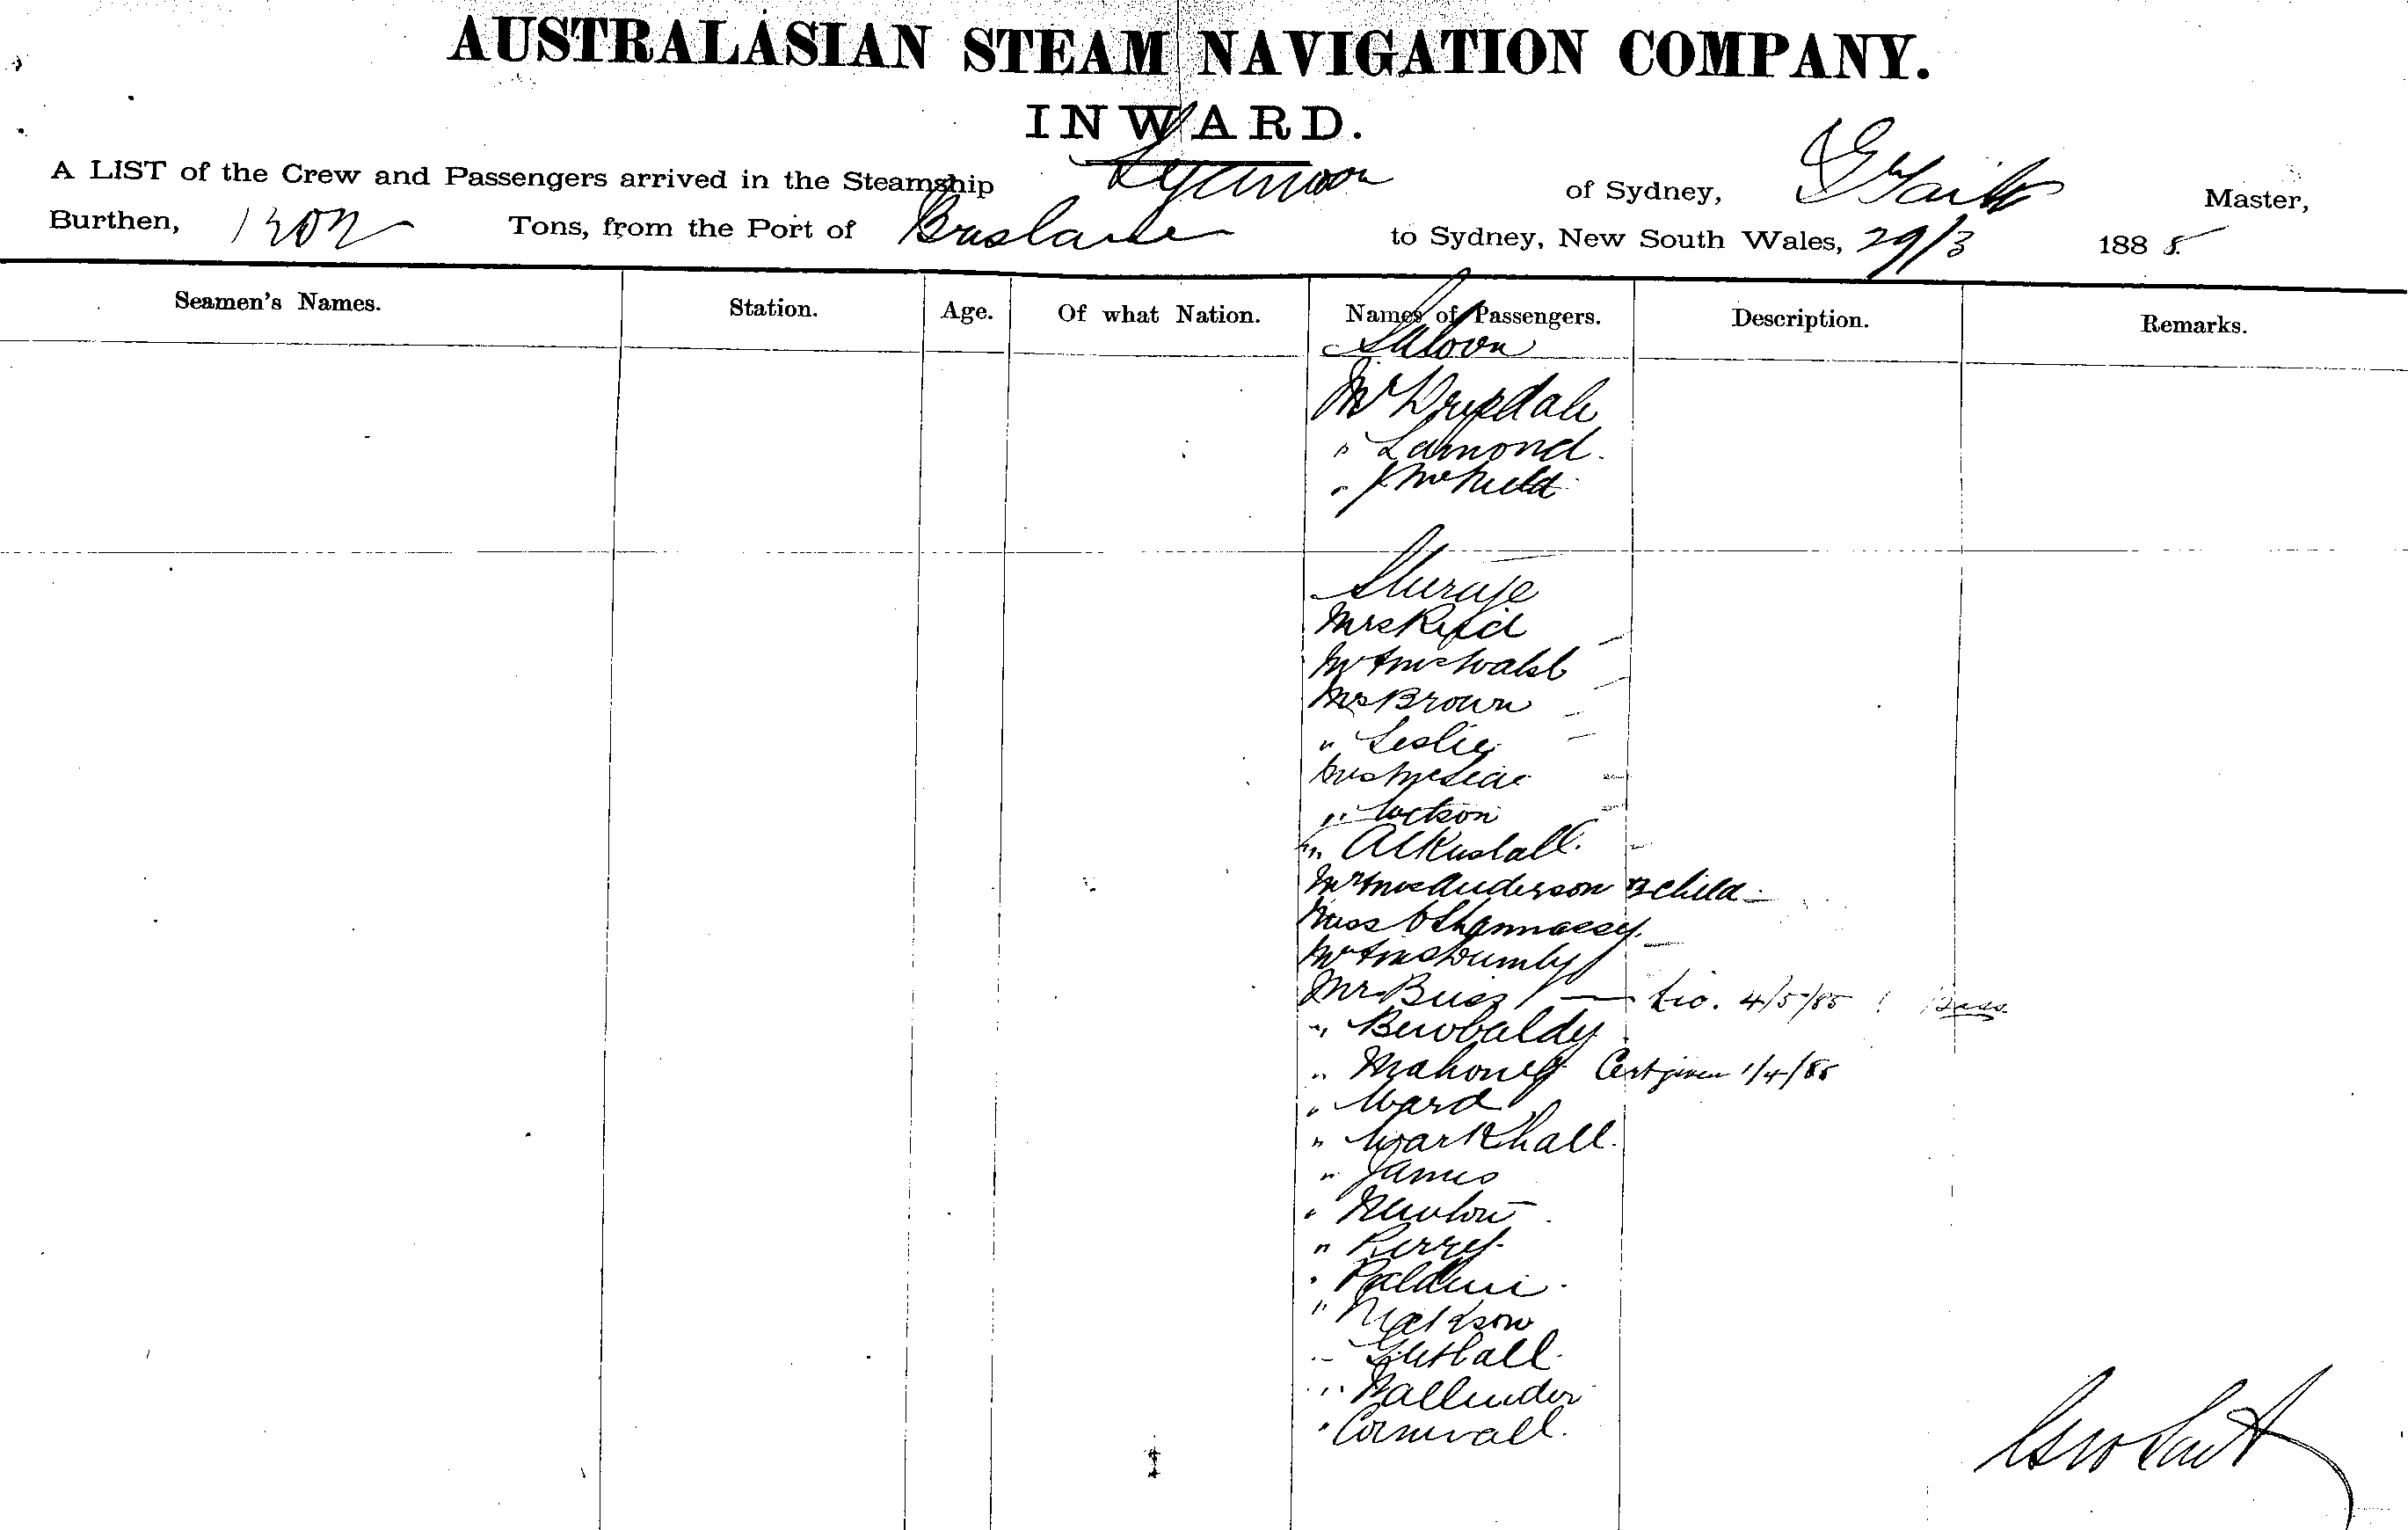 AUSTRALASIAN STEAM NAVIGATION COMPANY.
INWARD.
A LIST of the Crew and Passengers arrived in the Steamship Lyeemoon of Sydney, Master,
Burthen, 1202 Tons, from the Port of Brisbane to Sydney, New South Wales, 29/3 1885
Seamen's Names. Station. Age. Of what Nation. Names of Passengers. Description. Remarks.
Saloon
Mr Drysdale
" Lamond.
"
Steerage
Mrs Reid
Mr & Mrs Walsh
Mrs Brown
" Leslie
Mrs
" Watson
Mr & Mrs Anderson & child
Miss O'Shannassy
Mr & Mrs
Mr Buss — Lio. 4/5/85 ! Buss
"
" Mahoney Cert given 1/4/85
" Ward
" Warkhall.
" James
" Newton
" Perry
" Baldwin
" Jackson
"
"
" Cornwall.